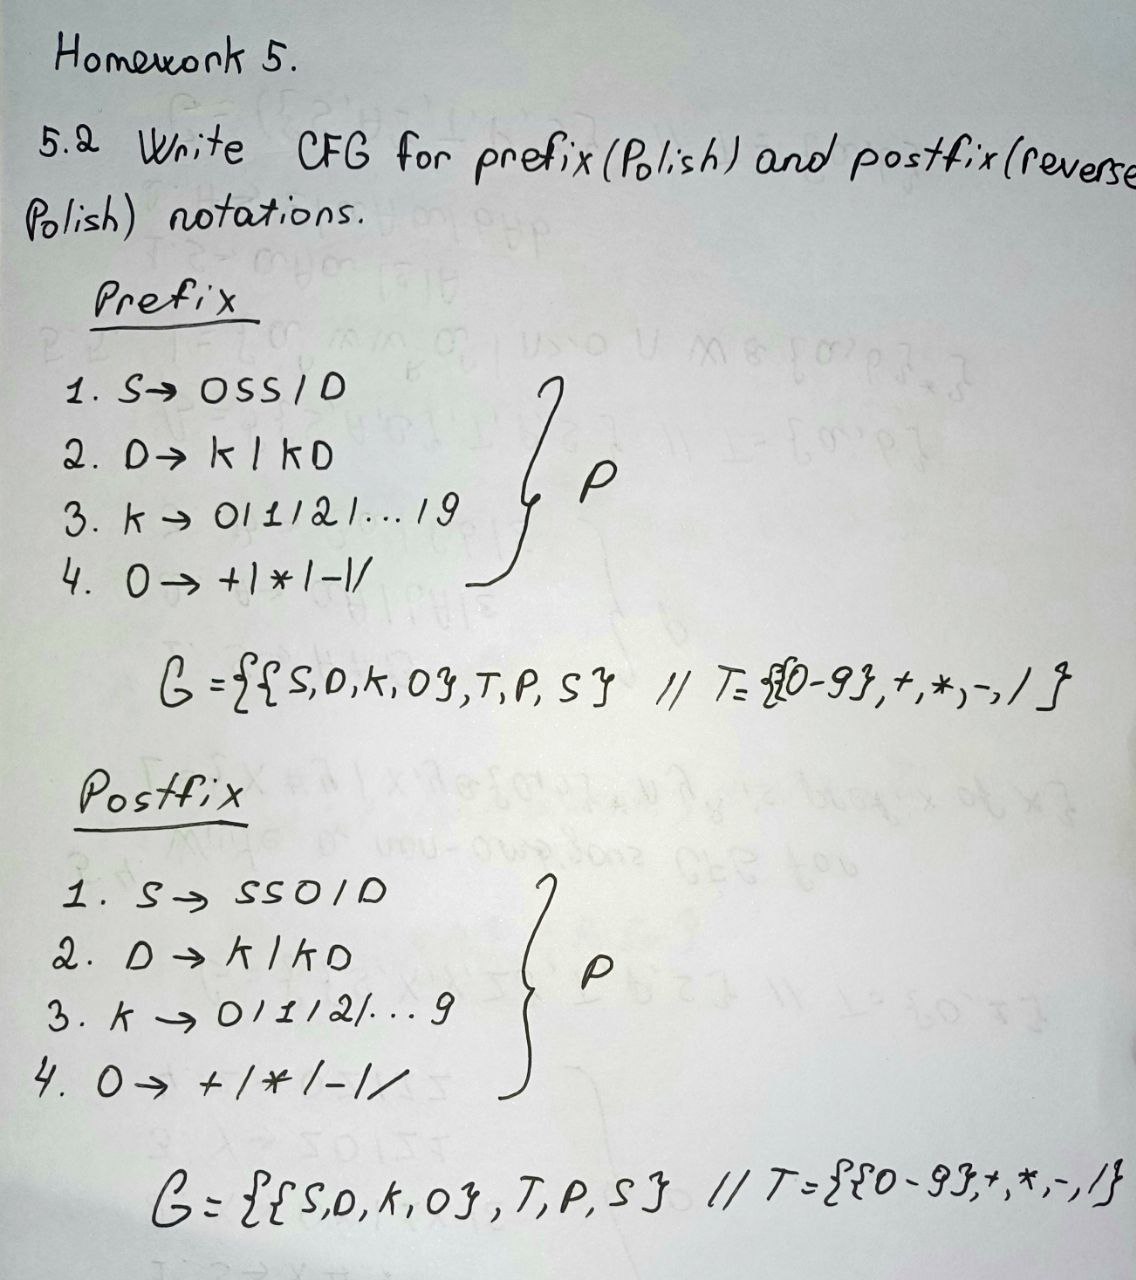 Homework 5.
5.2 Write CFG for prefix (Polish) and postfix (reverse
Polish) notations.
Prefix
1. S → OSS | D
2. D → K | KD
3. K → 0 | 1 | 2 | ... | 9
4. O → + | * | - | /
P
G = {{S, D, K, O}, T, P, S} // T = {{0-9}, +, *, -, / }
Postfix
1. S → SSO | D
2. D → K | KD
3. K → 0 | 1 | 2 | ... 9
4. O → + | * | - | /
P
G = {{S, D, K, O}, T, P, S} // T = {{0-9}, +, *, -, /}